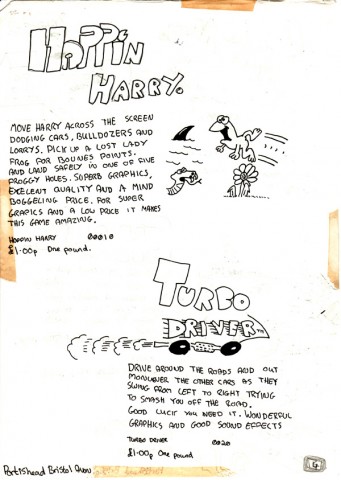 HOPPIN
HARRY.
MOVE HARRY ACROSS THE SCREEN
DODGING CARS, BULLDOZERS AND
LORRYS. PICK UP A LOST LADY
FROG FOR BOUNES POINTS.
AND LAND SAFELY IN ONE OF FIVE
FROGGY HOLES. SUPERB GRAPHICS,
EXCELENT QUALITY AND A MIND
BOGGELING PRICE. FOR SUPER
GRAPICS AND A LOW PRICE IT MAKES
THIS GAME AMAZING.
HOPPIN HARRY 00010
£1.00p One pound.
TURBO
DRIVER
DRIVE AROUND THE ROADS AND OUT
MONUVER THE OTHER CARS AS THEY
SWING FROM LEFT TO RIGHT TRYING
TO SMASH YOU OFF THE ROAD.
GOOD LUCK YOU NEED IT. WONDERFUL
GRAPHICS AND GOOD SOUND EFFECTS
TURBO DRIVER 0020
£1.00p One pound
Portishead Bristol Avon